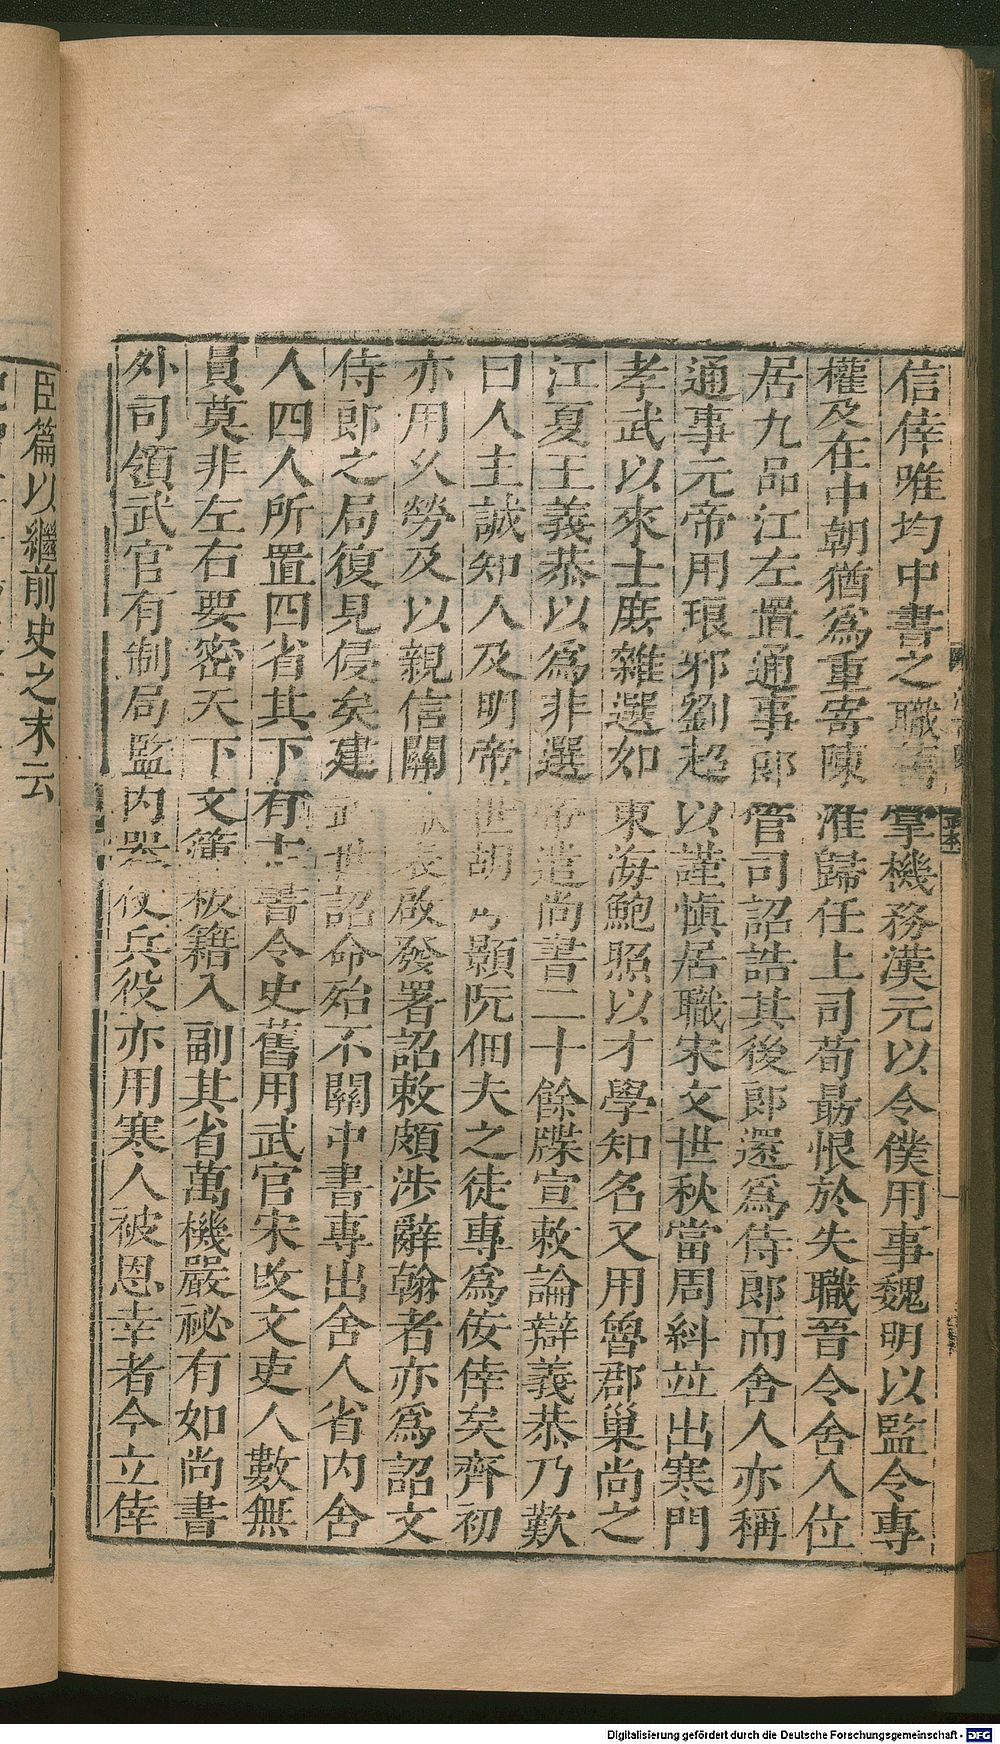 信倖唯均中書之職舊掌機務漢元以令僕用事魏明以監令專
權及在中朝猶爲重寄陳准歸任上司荀勗恨於失職晉令舍人位
居九品江左置通事郎管司詔誥其後郎還爲侍郎而舍人亦稱
通事元帝用琅邪劉超以謹愼居職宋文世秋當周糾竝出寒門
孝武以來士庶雜選如東海鮑照以才學知名又用魯郡巢尚之
江夏王義恭以爲非選帝遣尚書二十餘牒宣敕論辯義恭乃歎
曰人主誠知人及明帝世胡顯阮佃夫之徒專爲佞倖矣齊初
亦用久勞及以親信關表啟發署詔敕頗涉辭翰者亦爲詔文
侍郎之局復見侵矣建武世詔命始不關中書專出舍人省內舍
人四人所置四省其下有主書令史舊用武官宋改文吏人數無
員莫非左右要密天下文簿板籍入副其省萬機嚴祕有如尚書
外司領武官有制局監內器仗兵役亦用寒人被恩幸者今立倖
臣篇以繼前史之末云
Digitalisierung gefördert durch die Deutsche Forschungsgemeinschaft - DFG